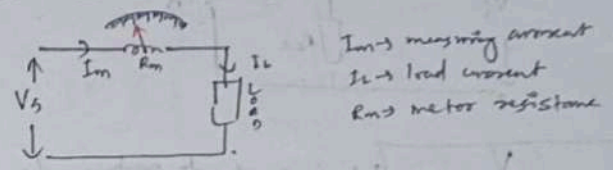 Im
Rm
IL
Vs
LOAD
Im → measuring current
IL → load current
Rm → meter resistance